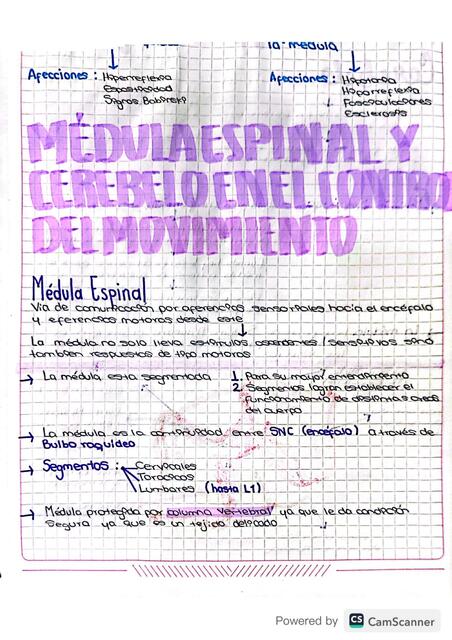 la médula
Afecciones : Hiperreflexia
Espasticidad
Signos Babinski
Afecciones : Hipotonia
Hiporreflexia
Fasciculaciones
Esclerosis
MÉDULA ESPINAL Y
CEREBELO EN EL CONTROL
DEL MOVIMIENTO
Médula Espinal
Via de comunicación por aferencias sensoriales hacia el encéfalo
y eferencias motoras desde este
La médula no solo lleva estímulos ascendentes / sensitivos sino
tambien respuestas de tipo motoras
→ La médula esta segmentada
1. Para su mayor entendimiento
2. Segmentos logran establecer el
funcionamiento de distintas areas
del cuerpo
→ La médula es la continuidad entre SNC (encéfalo) a través de
Bulbo raquídeo
→ Segmentos :
Cervicales
Toracicos
Lumbares (hasta L1)
→ Médula protegida por columna vertebral ya que le da condición
segura ya que es un tejido delicado
Powered by CS CamScanner